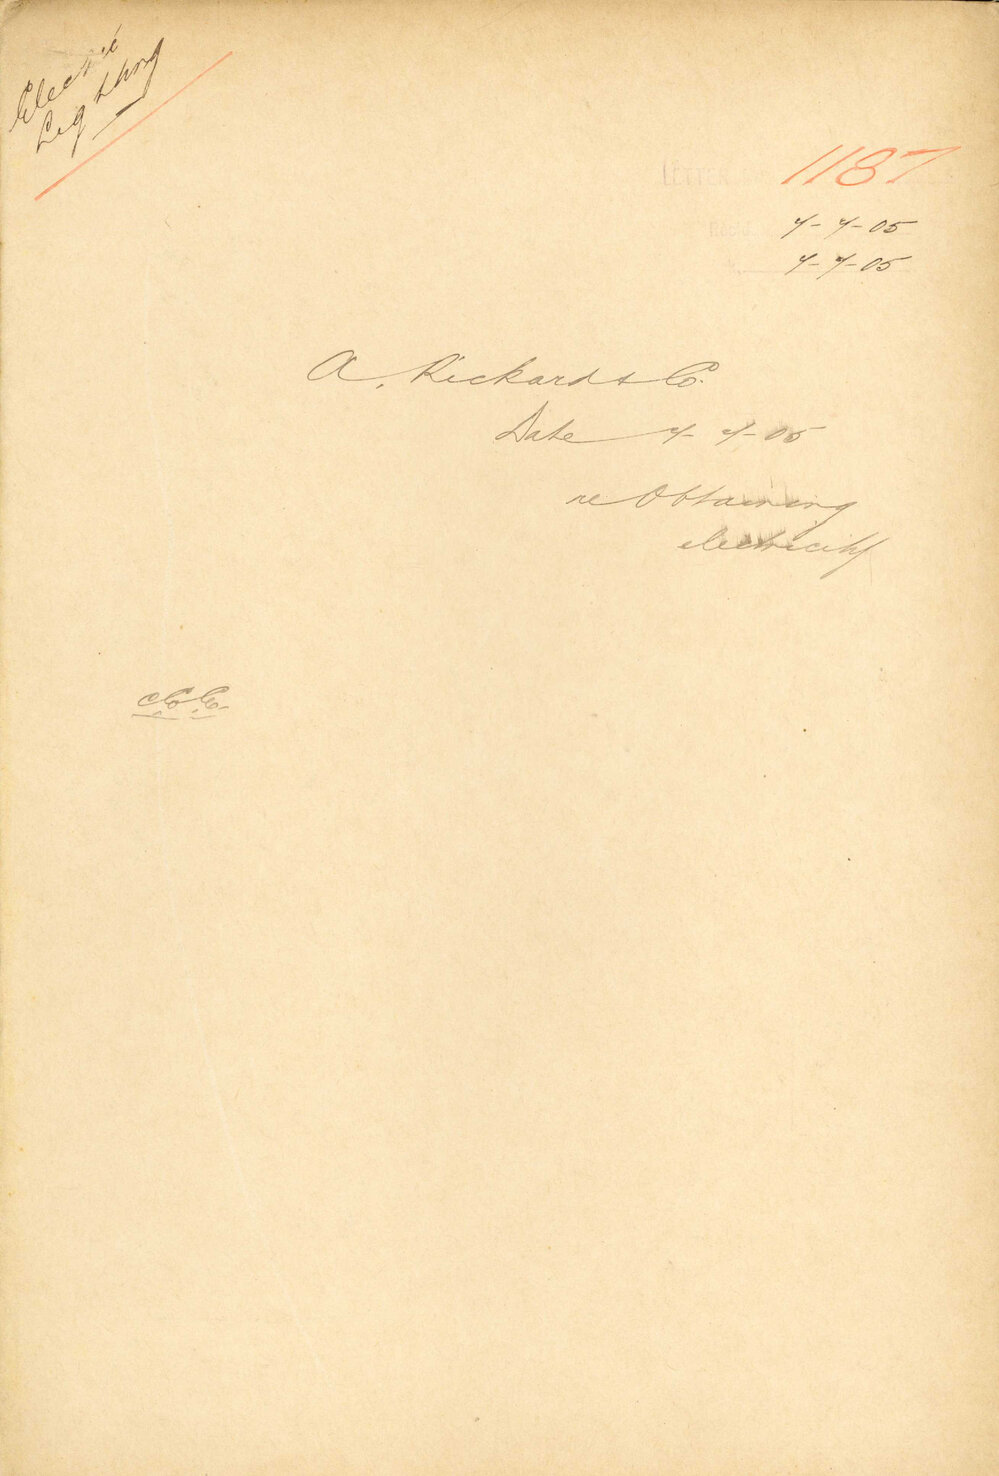 Electric
Lighting
LETTER
1187
Rec'd
7-7-05
7-7-05
A. Rickard & Co.
Date 7-7-05
re Obtaining
electricity